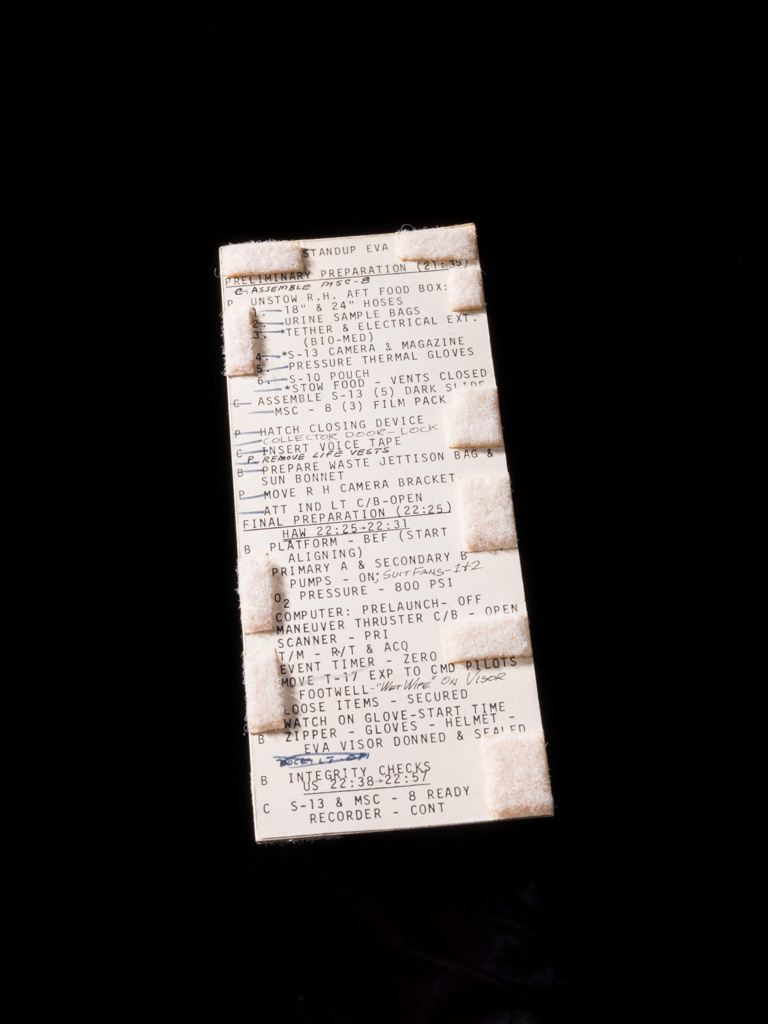 STANDUP EVA
PRELIMINARY PREPARATION (21:30)
C-ASSEMBLE MSC-8
P UNSTOW R.H. AFT FOOD BOX:
1. 18" & 24" HOSES
2. URINE SAMPLE BAGS
3. *TETHER & ELECTRICAL EXT.
(BIO-MED)
4. *S-13 CAMERA & MAGAZINE
5. PRESSURE THERMAL GLOVES
6. S-10 POUCH
*STOW FOOD - VENTS CLOSED
C ASSEMBLE S-13 (5) DARK SLIDE
MSC - 8 (3) FILM PACK
P HATCH CLOSING DEVICE
COLLECTOR DOOR-LOCK
C INSERT VOICE TAPE
P. REMOVE LIFE VESTS
B PREPARE WASTE JETTISON BAG &
SUN BONNET
P MOVE R H CAMERA BRACKET
ATT IND LT C/B-OPEN
FINAL PREPARATION (22:25)
HAW 22:25-22:31
B PLATFORM - BEF (START
ALIGNING)
PRIMARY A & SECONDARY B
PUMPS - ON; SUIT FANS-1+2
O2 PRESSURE - 800 PSI
COMPUTER: PRELAUNCH- OFF
MANEUVER THRUSTER C/B - OPEN
SCANNER - PRI
T/M - R/T & ACQ
EVENT TIMER - ZERO
MOVE T-17 EXP TO CMD PILOTS
FOOTWELL-"WET WIPE" ON VISOR
LOOSE ITEMS - SECURED
WATCH ON GLOVE-START TIME
B ZIPPER - GLOVES - HELMET -
EVA VISOR DONNED & SEALED
B INTEGRITY CHECKS
US 22:38-22:57
C S-13 & MSC - 8 READY
RECORDER - CONT